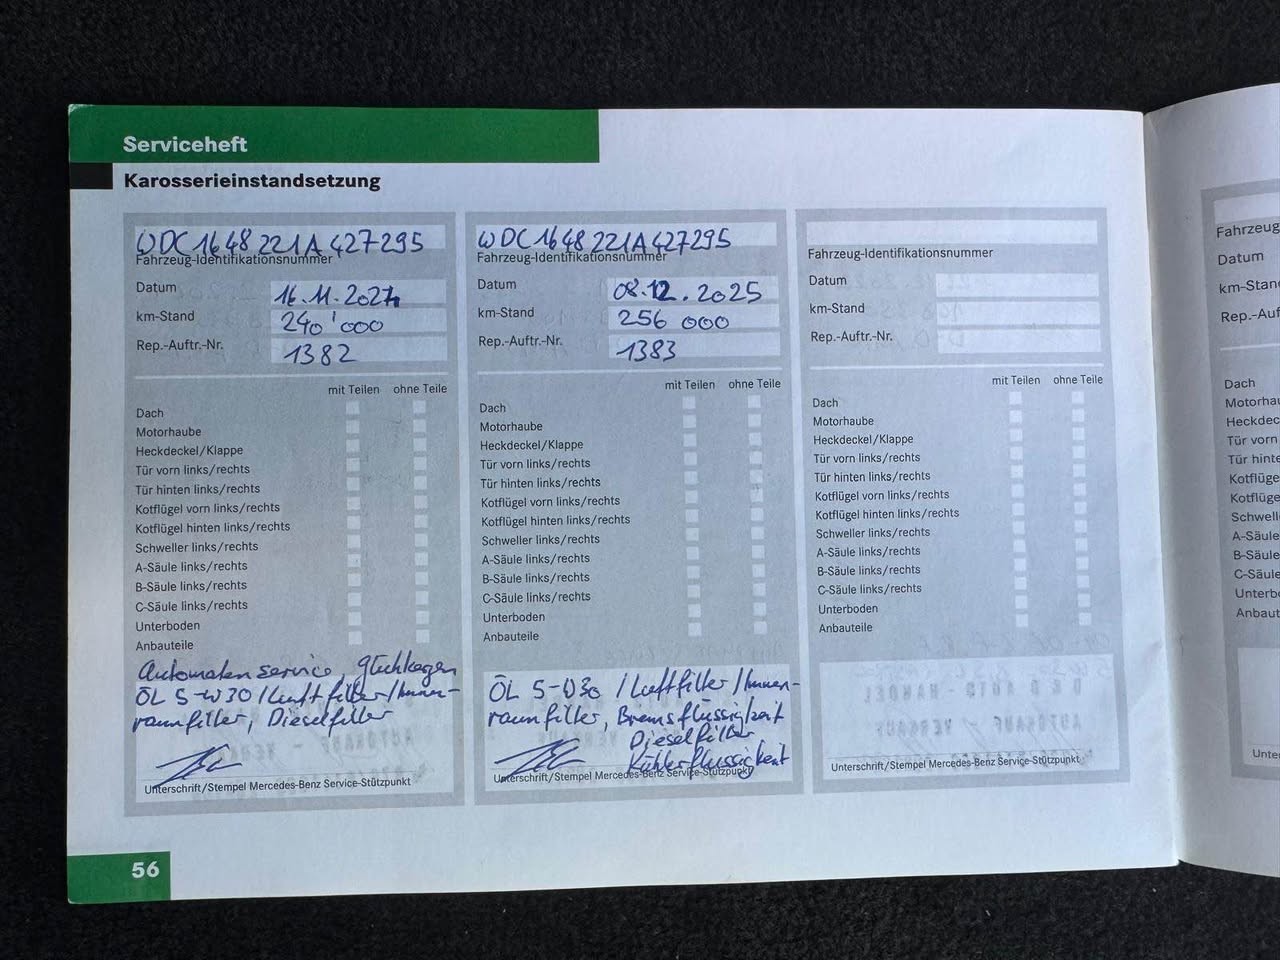 Serviceheft
Karosserieinstandsetzung
WDC1648221A427295
Fahrzeug-Identifikationsnummer
Datum 16.11.2024
km-Stand 240'000
Rep.-Auftr.-Nr. 1382
mit Teilen ohne Teile
Dach
Motorhaube
Heckdeckel/Klappe
Tür vorn links/rechts
Tür hinten links/rechts
Kotflügel vorn links/rechts
Kotflügel hinten links/rechts
Schweller links/rechts
A-Säule links/rechts
B-Säule links/rechts
C-Säule links/rechts
Unterboden
Anbauteile
Automatenservice, Glühkerzen
ÖL 5-W30 / Luftfilter / Innen-
raumfilter, Dieselfilter
Unterschrift/Stempel Mercedes-Benz Service-Stützpunkt
WDC1648221A427295
Fahrzeug-Identifikationsnummer
Datum 08.12.2025
km-Stand 256 000
Rep.-Auftr.-Nr. 1383
mit Teilen ohne Teile
Dach
Motorhaube
Heckdeckel/Klappe
Tür vorn links/rechts
Tür hinten links/rechts
Kotflügel vorn links/rechts
Kotflügel hinten links/rechts
Schweller links/rechts
A-Säule links/rechts
B-Säule links/rechts
C-Säule links/rechts
Unterboden
Anbauteile
ÖL 5-W30 / Luftfilter / Innen-
raumfilter, Bremsflüssigkeit
Dieselfilter
Kühlerflüssigkeit
Unterschrift/Stempel Mercedes-Benz Service-Stützpunkt
Fahrzeug-Identifikationsnummer
Datum
km-Stand
Rep.-Auftr.-Nr.
mit Teilen ohne Teile
Dach
Motorhaube
Heckdeckel/Klappe
Tür vorn links/rechts
Tür hinten links/rechts
Kotflügel vorn links/rechts
Kotflügel hinten links/rechts
Schweller links/rechts
A-Säule links/rechts
B-Säule links/rechts
C-Säule links/rechts
Unterboden
Anbauteile
Unterschrift/Stempel Mercedes-Benz Service-Stützpunkt
56
Fahrzeug
Datum
km-Stan
Rep.-Auf
Dach
Motorhau
Heckdec
Tür vorn
Tür hinte
Kotflüge
Kotflüge
Schwell
A-Säule
B-Säule
C-Säule
Unterbo
Anbaut
Unter